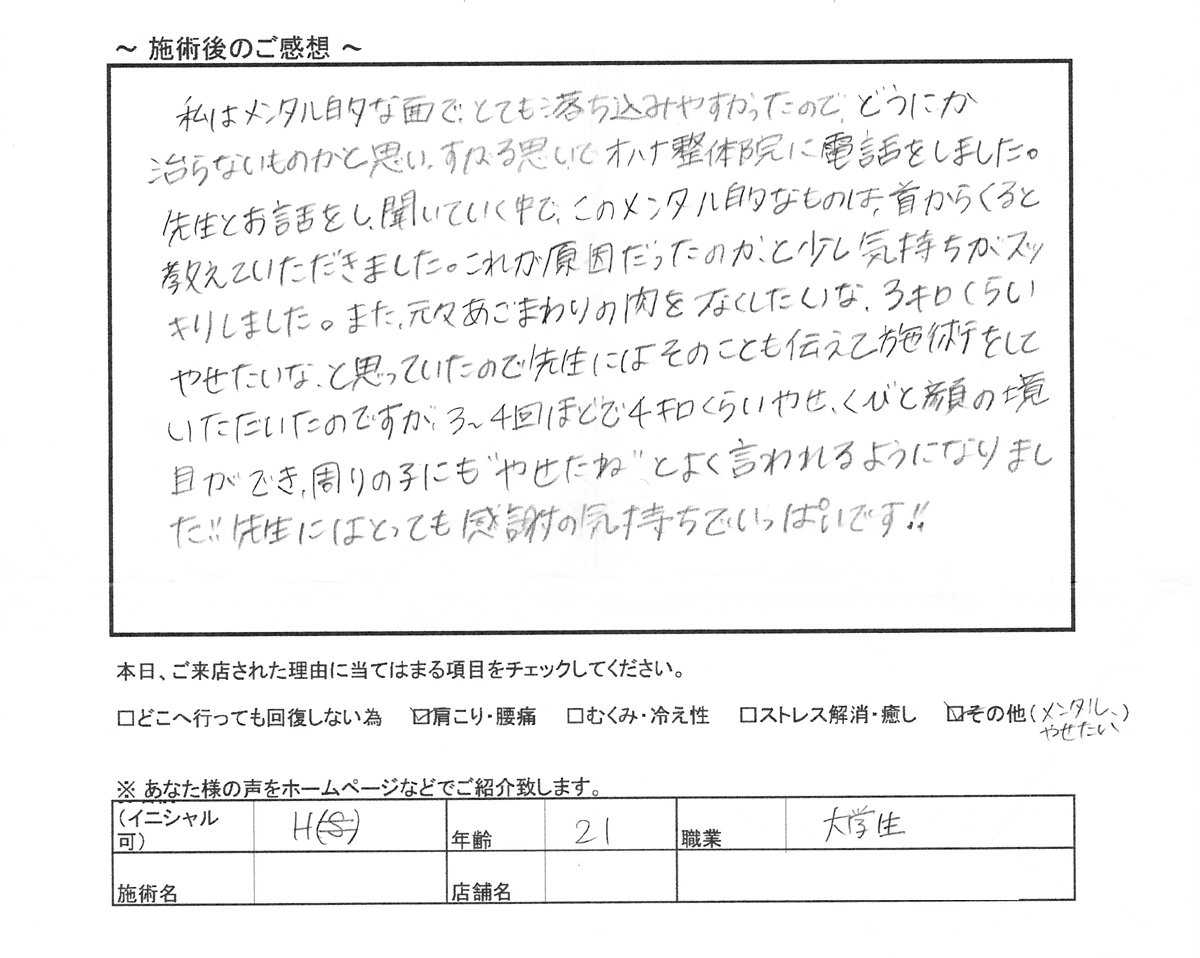 ～ 施術後のご感想 ～
私はメンタル的な面で、とても落ち込みやすかったので、どうにか
治らないものかと思い、すがる思いでオハナ整体院に電話をしました。
先生とお話をし、聞いていく中で、このメンタル的なものは、首からくると
教えていただきました。これが原因だったのか、と少し気持ちがスッ
キリしました。また、元々あごまわりの肉をなくしたいな、3キロくらい
やせたいな、と思っていたので先生にはそのことも伝えて施術をして
いただいたのですが、3～4回ほどで4キロくらいやせ、くびと顔の境
目ができ、周りの子にも"やせたね"とよく言われるようになりまし
た!! 先生にはとっても感謝の気持ちでいっぱいです!!
本日、ご来店された理由に当てはまる項目をチェックしてください。
□どこへ行っても回復しない為 ☑肩こり・腰痛 □むくみ・冷え性 □ストレス解消・癒し ☑その他(メンタル、)
やせたい
※ あなた様の声をホームページなどでご紹介致します。
(イニシャル可) H(S) 年齢 21 職業 大学生
施術名 店舗名